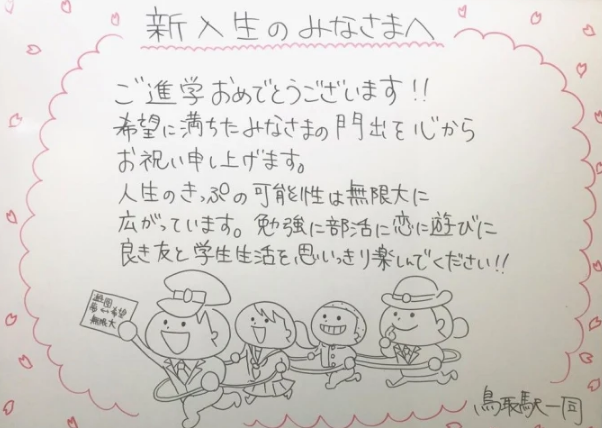 新入生のみなさまへ
ご進学おめでとうございます!!
希望に満ちたみなさまの門出を心から
お祝い申し上げます。
人生のきっぷの可能性は無限大に
広がっています。勉強に部活に恋に遊びに
良き友と学生生活を思いっきり楽しんでください!!
無限大
鳥取駅一同